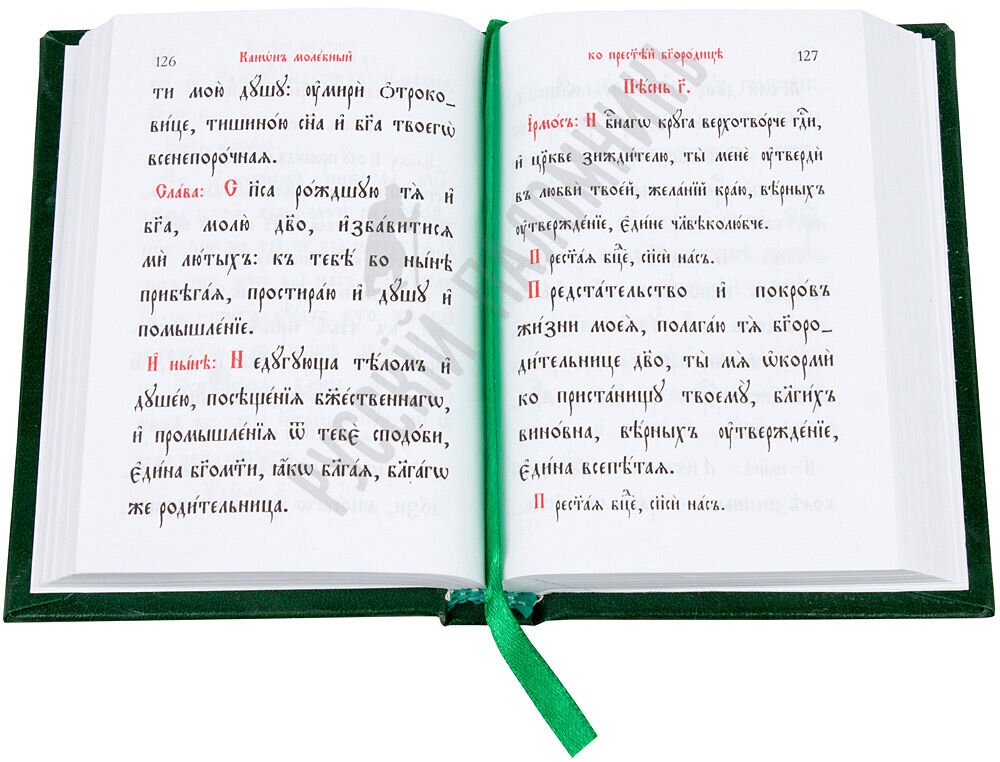 126
Канѡ́нъ моле́бный
ти мою̀ дꙋ́шꙋ: ᲂу҆мирѝ ѻ҆троко-
ви́це, тишино́ю сн҃а и҆ бг҃а твоегѡ̀
всенепоро́чная.
Сла́ва: Сп҃са ро́ждшꙋю тѧ̀ и҆
бг҃а, молю̀ дв҃о, и҆зба́витисѧ
мѝ лю́тыхъ: къ тебѣ́ бо ны́нѣ
прибѣга́ѧ, простира́ю и҆ дꙋ́шꙋ и҆
помышле́нїе.
И҆ ны́нѣ: Недꙋ́гꙋюща тѣ́ломъ и҆
дꙋше́ю, посѣще́нїѧ бж҃е́ственнагѡ,
и҆ промышле́нїѧ ѿ тебє̀ сподо́би,
є҆ди́на бг҃ома́ти, ꙗ҆́кѡ бл҃га́ѧ, бл҃га́гѡ
же роди́тельница.
ко прест҃ѣ́й бг҃оро́дицѣ
127
Пѣ́снь г҃.
І҆рмо́съ: Нбⷭ҇нагѡ крꙋ́га верхотво́рче гдⷭ҇и,
и҆ цр҃кве зижди́телю, ты̀ менѐ ᲂу҆твердѝ
въ любвѝ твое́й, жела́нїй кра́ю, вѣ́рныхъ
ᲂу҆твержде́нїе, є҆ди́не чл҃вѣколю́бче.
Прест҃а́ѧ бцⷣе, сп҃сѝ на́съ.
Предста́тельство и҆ покро́въ
жи́зни моеѧ̀, полага́ю тѧ̀ бг҃оро-
ди́тельнице дв҃о, ты̀ мѧ̀ ѡ҆кормѝ
ко приста́нищꙋ твоемꙋ̀, бл҃ги́хъ
вино́вна, вѣ́рныхъ ᲂу҆твержде́нїе,
є҆ди́на всепѣ́таѧ.
Прест҃а́ѧ бцⷣе, сп҃сѝ на́съ.
РУССКІЙ ПАЛОМНИКЪ